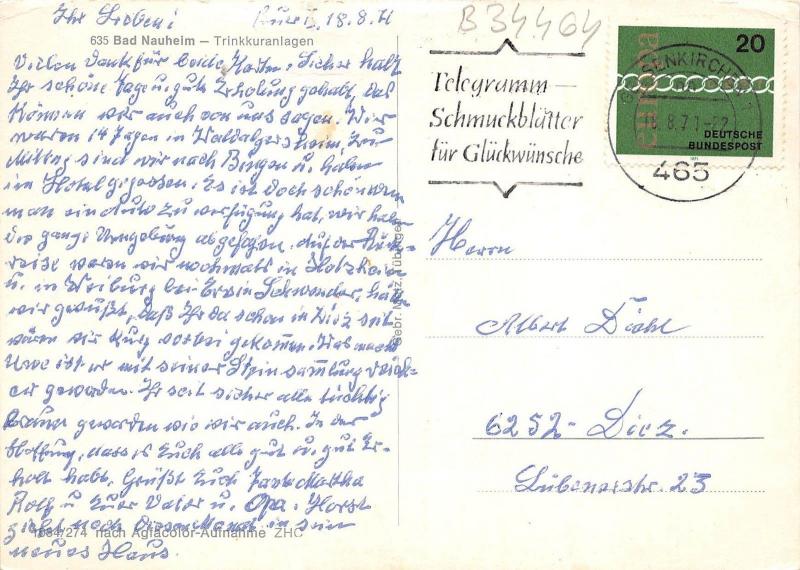 Ihr Lieben! 18.8.71
635 Bad Nauheim — Trinkkuranlagen
Vielen Dank für beide Karten. Sicher habt
Ihr schöne Tage u. gute Erholung gehabt, das
können wir auch von uns sagen. Wir
waren 14 Tagen in Waldalgesheim, zu
Mittag sind wir nach Bingen u. haben
im Hotel gegessen. Es ist doch schön wenn
man ein Auto zu verfügung hat, wir haben
die ganze Umgebung abgefahren. Auf der Rück-
reise waren wir nochmals in Holzheim
u. in Weilburg bei Erwin, hätten
wir gewußt, daß Ihr da schon in Diez seit
wären wir kurz vorbei gekommen. Was macht
Uwe ist er mit seiner Steinsammlung reich-
er geworden. Ihr seit sicher alle tüchtig
braun geworden wie wir auch. In der
Hoffnung, dass es Euch alle gut u. gut Er-
holt habt, Grüßt Euch Tante Martha
Rolf u. Euer Vater u. Opa. Horst
zieht noch diesen Monat in sein
neues Haus.
1684/274 nach Agfacolor-Aufnahme ZHC
Gebr. Metz, Tübingen
B34464
Telegramm —
Schmuckblätter
für Glückwünsche
GELSENKIRCHEN 1
8.71
465
20
europa
DEUTSCHE
BUNDESPOST
1971
Herrn
Albert Diehl
6252 - Diez.
23